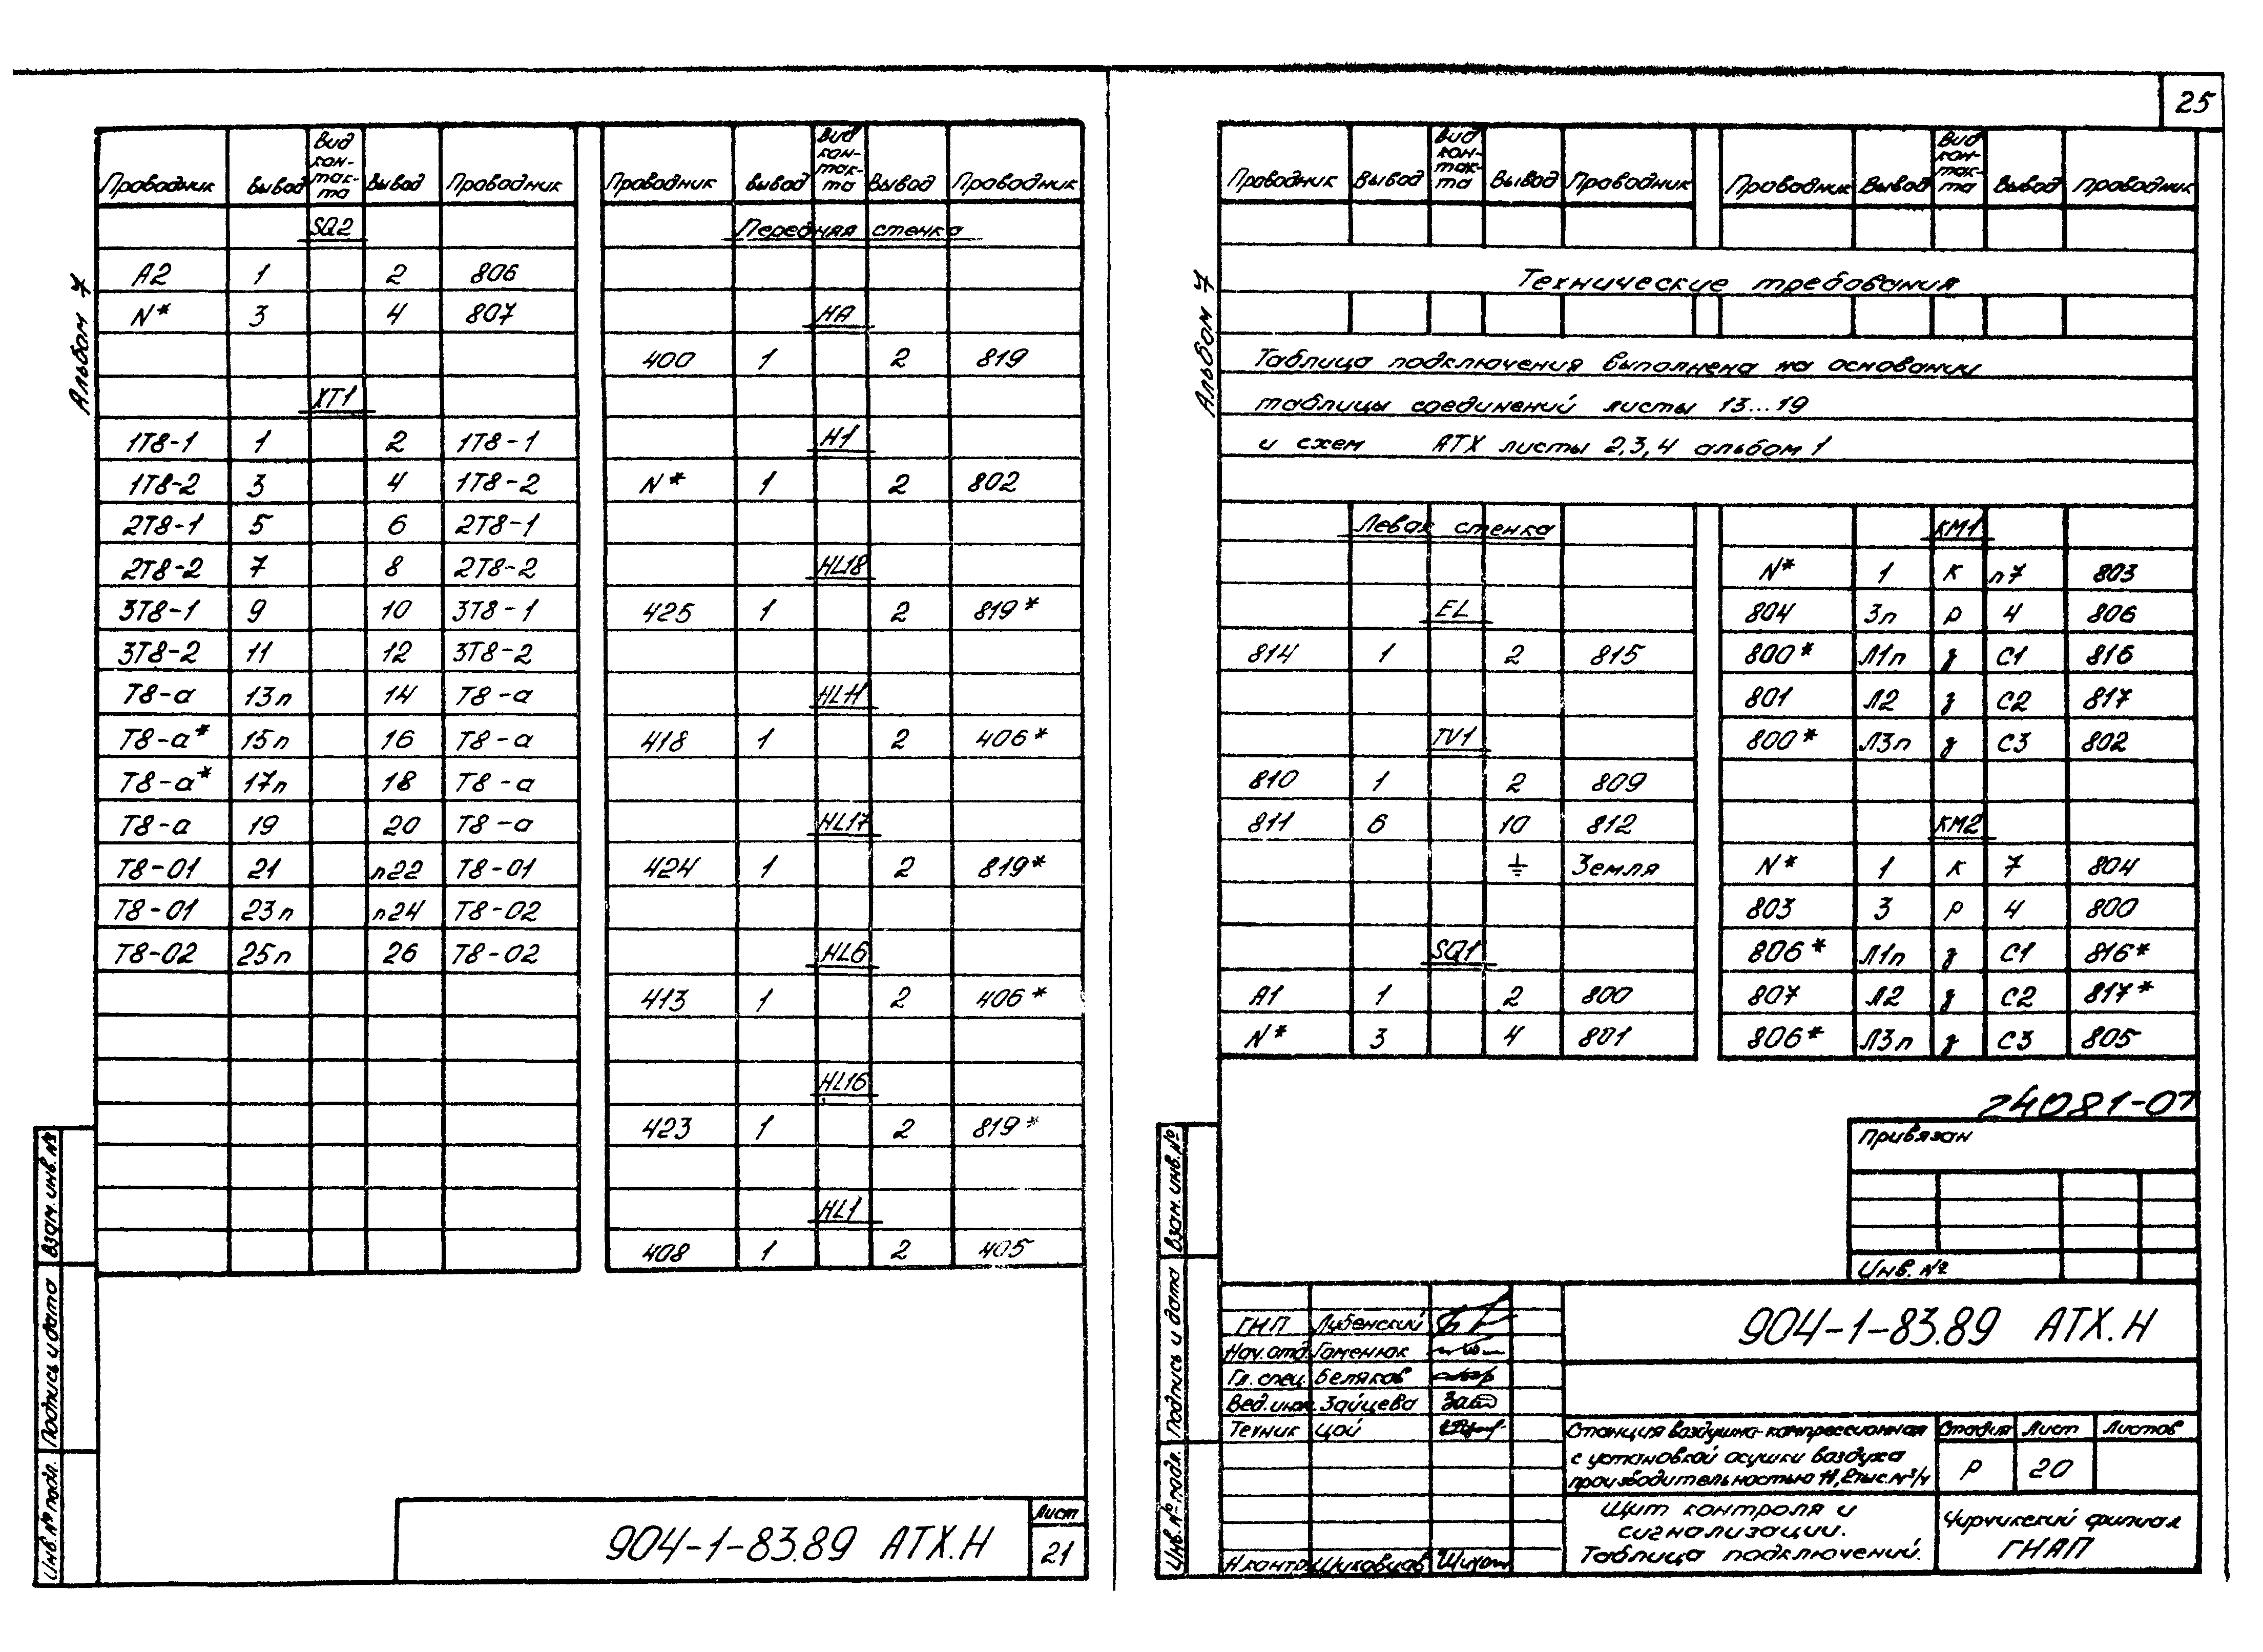 25
Альбом 7
Проводник Вывод Вид кон-так-та Вывод Проводник
SQ2
А2 1 2 806
N* 3 4 807
XT1
1Т8-1 1 2 1Т8-1
1Т8-2 3 4 1Т8-2
2Т8-1 5 6 2Т8-1
2Т8-2 7 8 2Т8-2
3Т8-1 9 10 3Т8-1
3Т8-2 11 12 3Т8-2
Т8-а 13п 14 Т8-а
Т8-а* 15п 16 Т8-а
Т8-а* 17п 18 Т8-а
Т8-а 19 20 Т8-а
Т8-01 21 п22 Т8-01
Т8-01 23п п24 Т8-02
Т8-02 25п 26 Т8-02
Проводник Вывод Вид кон-так-та Вывод Проводник
Передняя стенка
НА
400 1 2 819
Н1
N* 1 2 802
HL18
425 1 2 819*
HL11
418 1 2 406*
HL17
424 1 2 819*
HL6
413 1 2 406*
HL16
423 1 2 819*
HL1
408 1 2 405
Взам. инв. №
Подпись и дата
Инв. № подл.
904-1-83.89 АТХ.Н
Лист
21
Альбом 7
Проводник Вывод Вид кон-так-та Вывод Проводник
Проводник Вывод Вид кон-так-та Вывод Проводник
Технические требования
Таблица подключения выполнена на основании
таблицы соединений листы 13...19
и схем АТХ листы 2,3,4 альбом 1
Левая стенка
EL
814 1 2 815
TV1
810 1 2 809
811 6 10 812
⏚ Земля
SQ1
А1 1 2 800
N* 3 4 801
КМ1
N* 1 К п7 803
804 3п р 4 806
800* Л1п з С1 816
801 Л2 з С2 817
800* Л3п з С3 802
КМ2
N* 1 К 7 804
803 3 р 4 800
806* Л1п з С1 816*
807 Л2 з С2 817*
806* Л3п з С3 805
24081-07
Привязан
Инв. №
Взам. инв. №
Подпись и дата
Инв. № подл.
ГНП Лубенский
Нач. отд. Гоменюк
Гл. спец. Беляков
Вед. инж. Зайцева
Техник Цой
Н.контр.
904-1-83.89 АТХ.Н
Станция воздушно-компрессионная
с установкой осушки воздуха
производительностью 11,2тыс.м³/ч
Стадия Лист Листов
Р 20
Щит контроля и
сигнализации.
Таблица подключений.
Чирчикский филиал
ГНАП